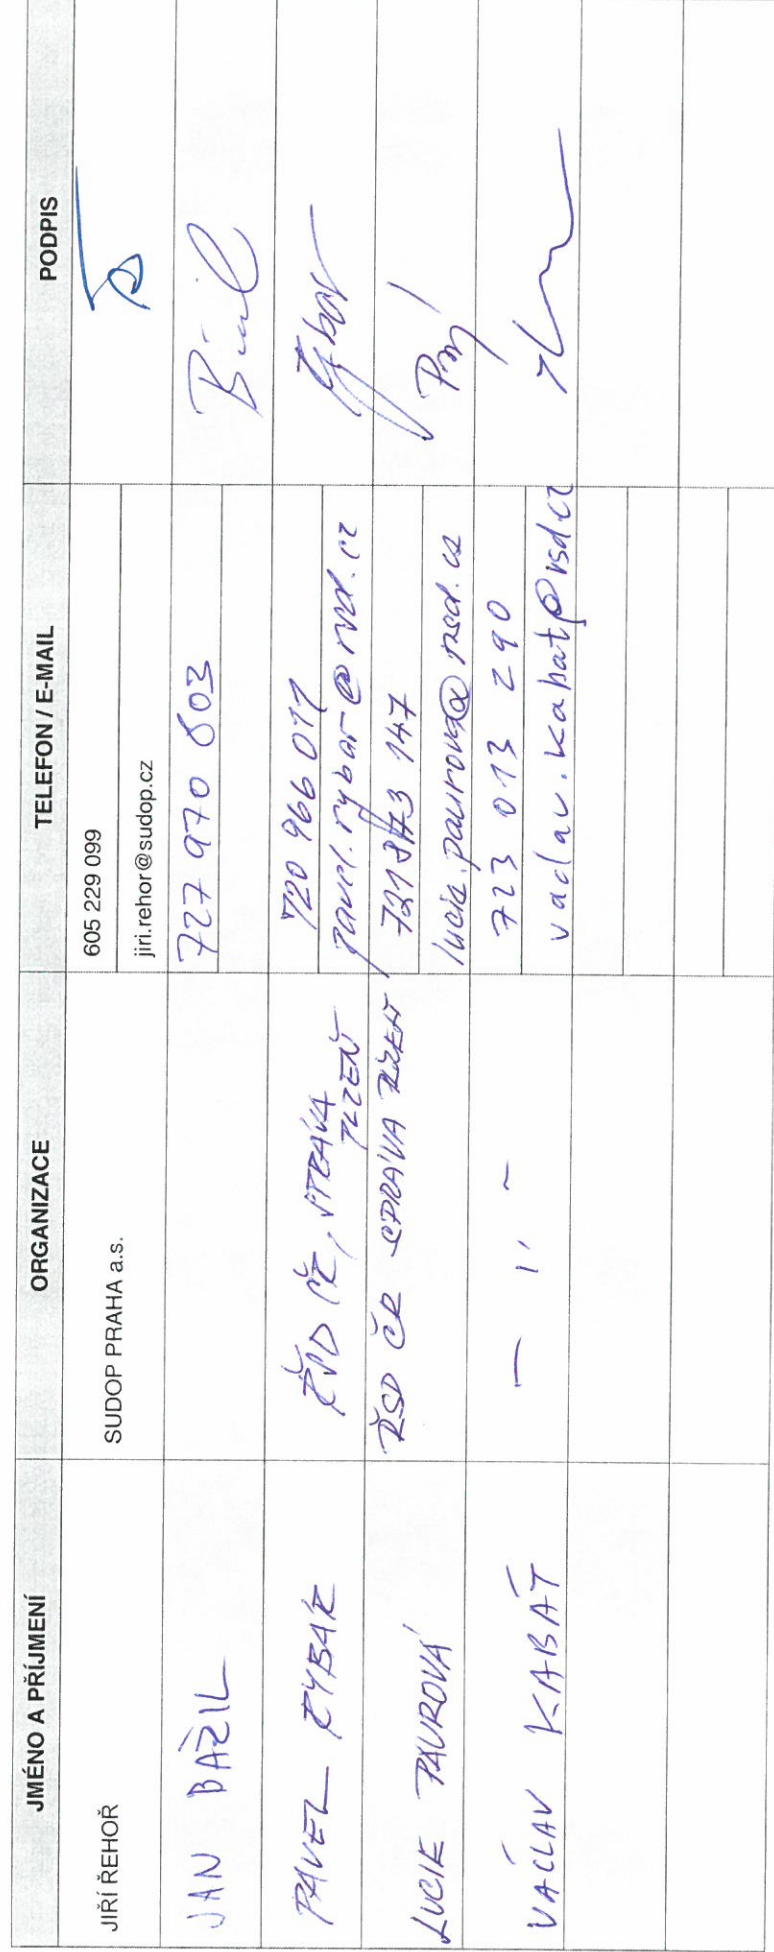 JMÉNO A PŘÍJMENÍ ORGANIZACE TELEFON / E-MAIL PODPIS
JIŘÍ ŘEHOŘ SUDOP PRAHA a.s. 605 229 099
jiri.rehor@sudop.cz
JAN BAŽIL 727 970 803
PAVEL RYBÁŘ ŘSD ČR, SPRÁVA PLZEŇ 720 966 011
pavel.rybar@rsd.cz
LUCIE PAUROVÁ ŘSD ČR SPRÁVA PLZEŇ 147
lucie.paurova@rsd.cz
VÁCLAV KABÁT – 11 – 723 013 290
vaclav.kabat@rsd.cz